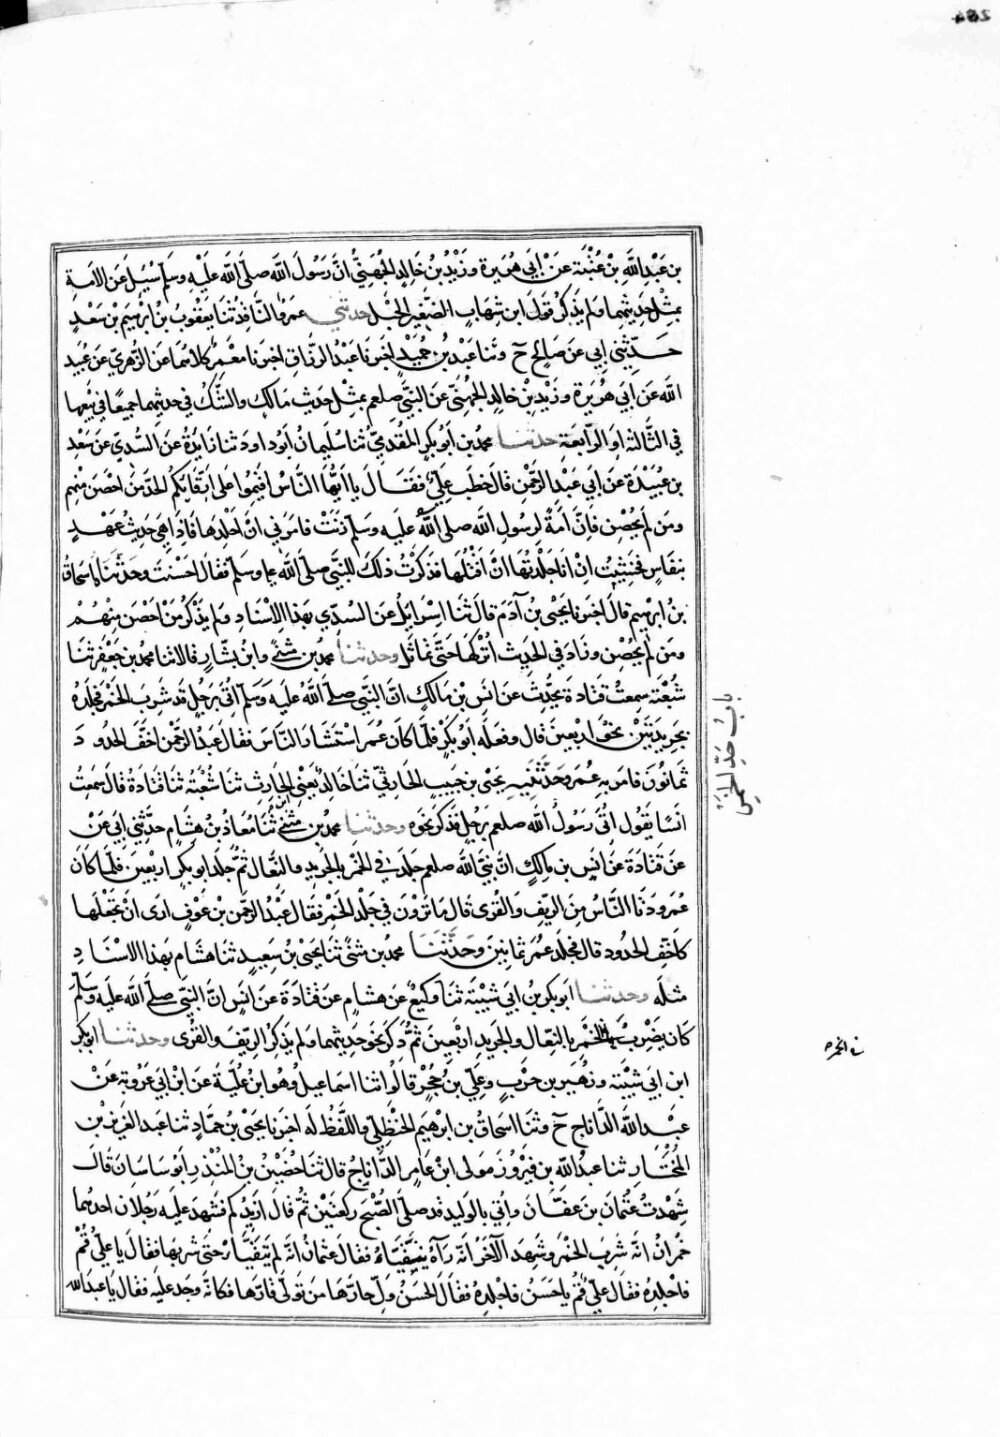 بن عبد الله بن عتبة عن ابي هريرة وزيد بن خالد الجهني ان رسول الله صلى الله عليه وسلم سئل عن الامة
بمثل حديثهما ولم يذكر قول ابن شهاب الضفير الحبل حدثني عمرو الناقد ثنا يعقوب بن ابرهيم بن سعد
حدثني ابي عن صالح ح وثنا عبد بن حميد اخبرنا عبد الرزاق اخبرنا معمر كلاهما عن الزهري عن عبيد
الله عن ابي هريرة وزيد بن خالد الجهني عن النبي صلعم بمثل حديث مالك والشك في حديثهما جميعا في بيعها
في الثالثة او الرابعة حدثنا محمد بن ابو بكر المقدمي ثنا سليمان ابو داود ثنا زايدة عن السدي عن سعد
بن عبيدة عن ابي عبد الرحمن قال خطب علي فقال يا ايها الناس اقيموا على ارقايكم الحد من احصن منهم
ومن لم يحصن فان امة لرسول الله صلى الله عليه وسلم زنت فامرني ان اجلدها فاذا هي حديث عهد
بنفاس فخشيت ان انا جلدتها ان اقتلها فذكرت ذلك للنبي صلى الله عليه وسلم فقال احسنت وحدثنا اسحاق
بن ابرهيم قال اخبرنا يحيى بن آدم قال ثنا اسرايل عن السدي بهذا الاسناد ولم يذكر من احصن منهم
ومن لم يحصن وزاد في الحديث اتركها حتى تماثل وحدثنا محمد بن مثنى وابن بشار قالا ثنا محمد بن جعفر ثنا
شعبة سمعت قتادة يحدث عن انس بن مالك ان النبي صلى الله عليه وسلم اتي برجل قد شرب الخمر فجلده
بجريدتين نحو اربعين قال وفعله ابو بكر فلما كان عمر استشار الناس فقال عبد الرحمن اخف الحدود
ثمانون فامر به عمر وحدثنيه يحيى بن حبيب الحارثي ثنا خالد يعني ابن الحارث ثنا شعبة ثنا قتادة قال سمعت
انسا يقول اتى رسول الله صلعم برجل فذكر نحوه وحدثنا محمد بن مثنى ثنا معاذ بن هشام حدثني ابي عن
عن قتادة عن انس بن مالك ان نبي الله صلعم جلد في الخمر بالجريد والنعال ثم جلد ابو بكر اربعين فلما كان
عمر ودنا الناس من الريف والقرى قال ما ترون في جلد الخمر فقال عبد الرحمن بن عوف ارى ان تجعلها
كاخف الحدود قال فجلد عمر ثمانين وحدثنا محمد بن مثنى ثنا يحيى بن سعيد ثنا هشام بهذا الاسناد
مثله وحدثنا ابو بكر بن ابي شيبة ثنا وكيع عن هشام عن قتادة عن انس ان النبي صلى الله عليه وسلم
كان يضرب في الخمر بالنعال والجريد اربعين ثم ذكر نحو حديثهما ولم يذكر الريف والقرى وحدثنا ابو بكر
ابن ابي شيبة وزهير بن حرب وعلي بن حجر قالوا ثنا اسماعيل وهو ابن علية عن ابن ابي عروبة عن
عبد الله الداناج ح وثنا اسحاق بن ابرهيم الحنظلي واللفظ له اخبرنا يحيى بن حماد ثنا عبد العزيز بن
المختار ثنا عبد الله بن فيروز مولى ابن عامر الداناج قال ثنا حضين بن المنذر ابو ساسان قال
شهدت عثمان بن عفان واتي بالوليد قد صلى الصبح ركعتين ثم قال ازيدكم فشهد عليه رجلان احدهما
حمران انه شرب الخمر وشهد الآخر انه رآه يتقياه فقال عثمان انه لم يتقيا حتى شربها فقال يا علي قم
فاجلده فقال علي قم يا حسن فاجلده فقال الحسن ول حارها من تولى قارها فكانه وجد عليه فقال يا عبد الله
باب حد الخمر
في الخمر
264